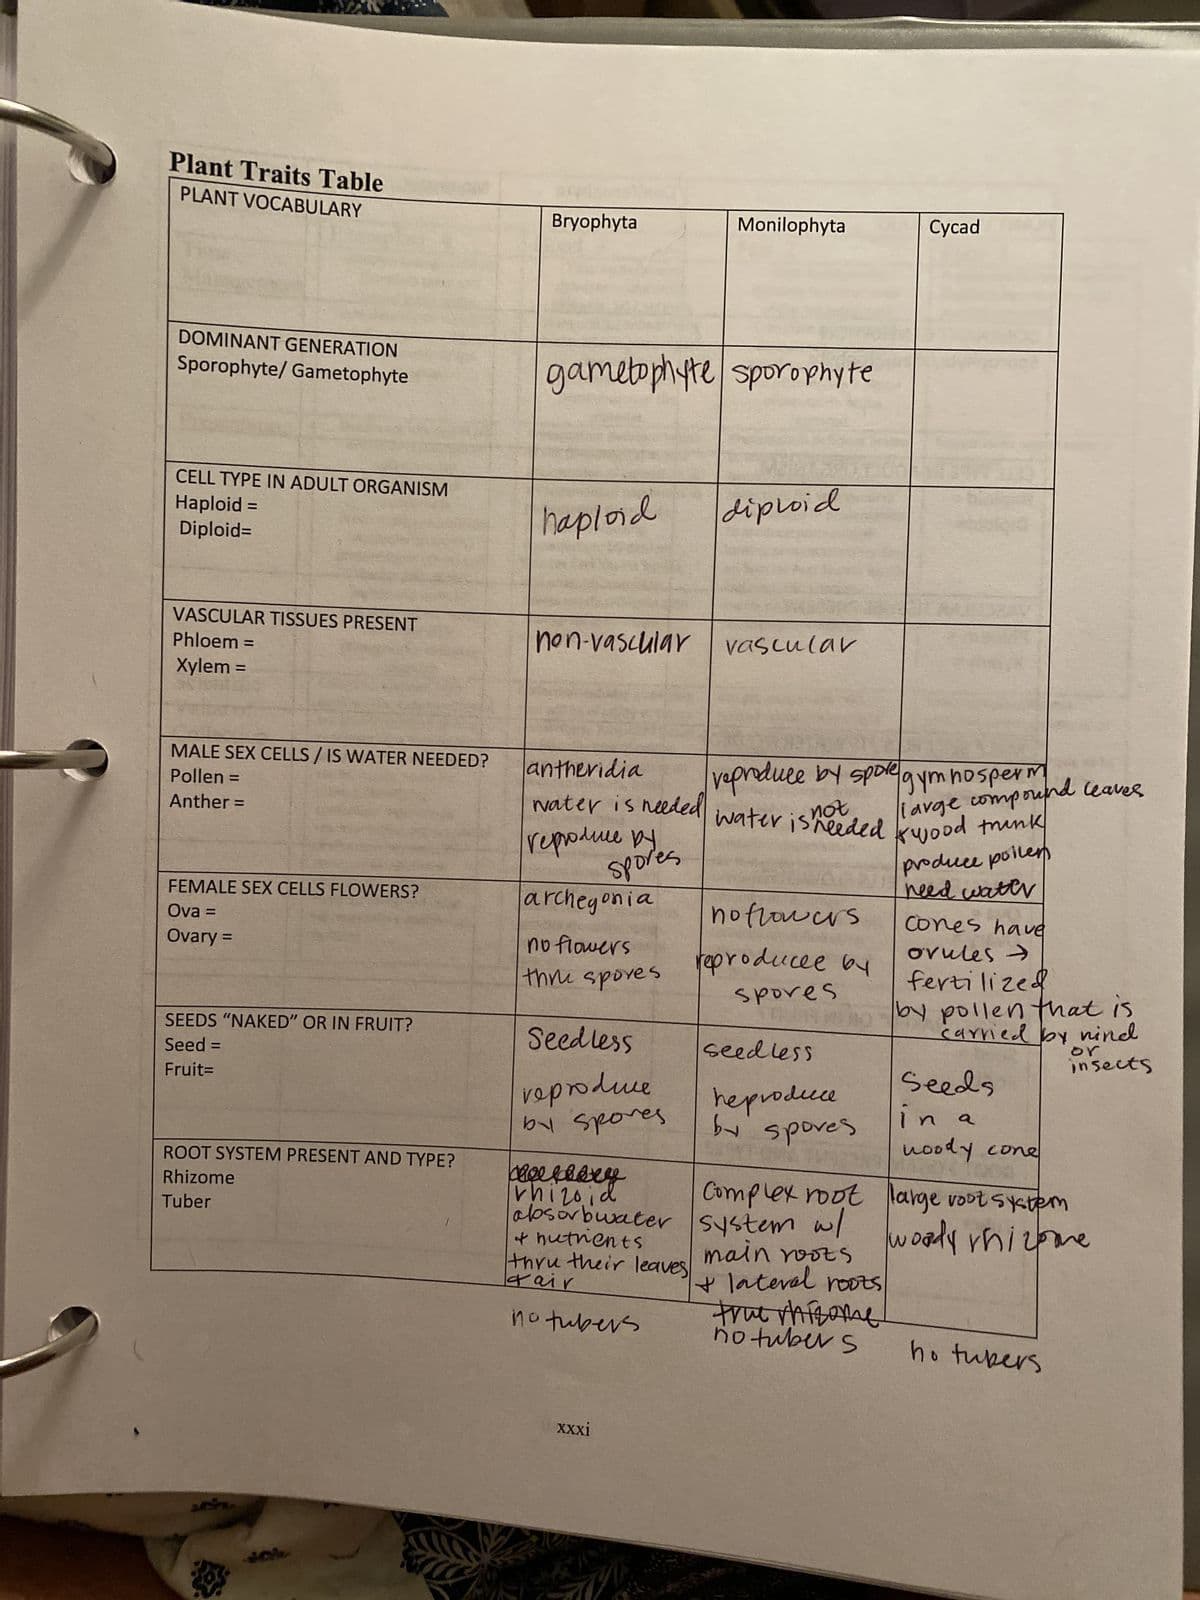 Plant Traits Table
PLANT VOCABULARY
Bryophyta
Monilophyta
Cycad
DOMINANT GENERATION
Sporophyte/ Gametophyte
gametophyte
sporophyte
CELL TYPE IN ADULT ORGANISM
Haploid =
Diploid=
haploid
diploid
VASCULAR TISSUES PRESENT
Phloem =
Xylem =
non-vascular
vascular
MALE SEX CELLS / IS WATER NEEDED?
Pollen =
Anther =
antheridia
water is needed
reproduce by
spores
reproduce by spore
not
water is needed
gymnosperm
large compound leaves
& wood trunk
produce pollen
need water
FEMALE SEX CELLS FLOWERS?
Ova =
Ovary =
archegonia
no flowers
thru spores
no flowers
reproducee by
spores
cones have
ovules →
fertilized
by pollen that is
carried by wind
or
insects
SEEDS "NAKED" OR IN FRUIT?
Seed =
Fruit=
Seedless
reproduce
by spores
seedless
reproduce
by spores
Seeds
in a
woody cone
ROOT SYSTEM PRESENT AND TYPE?
Rhizome
Tuber
rhizoid
absorb water
+ nutrients
thru their leaves
& air
no tubers
Complex root
system w/
main roots
+ lateral roots
true rhizome
no tubers
large root system
woody rhizome
no tubers
xxxi